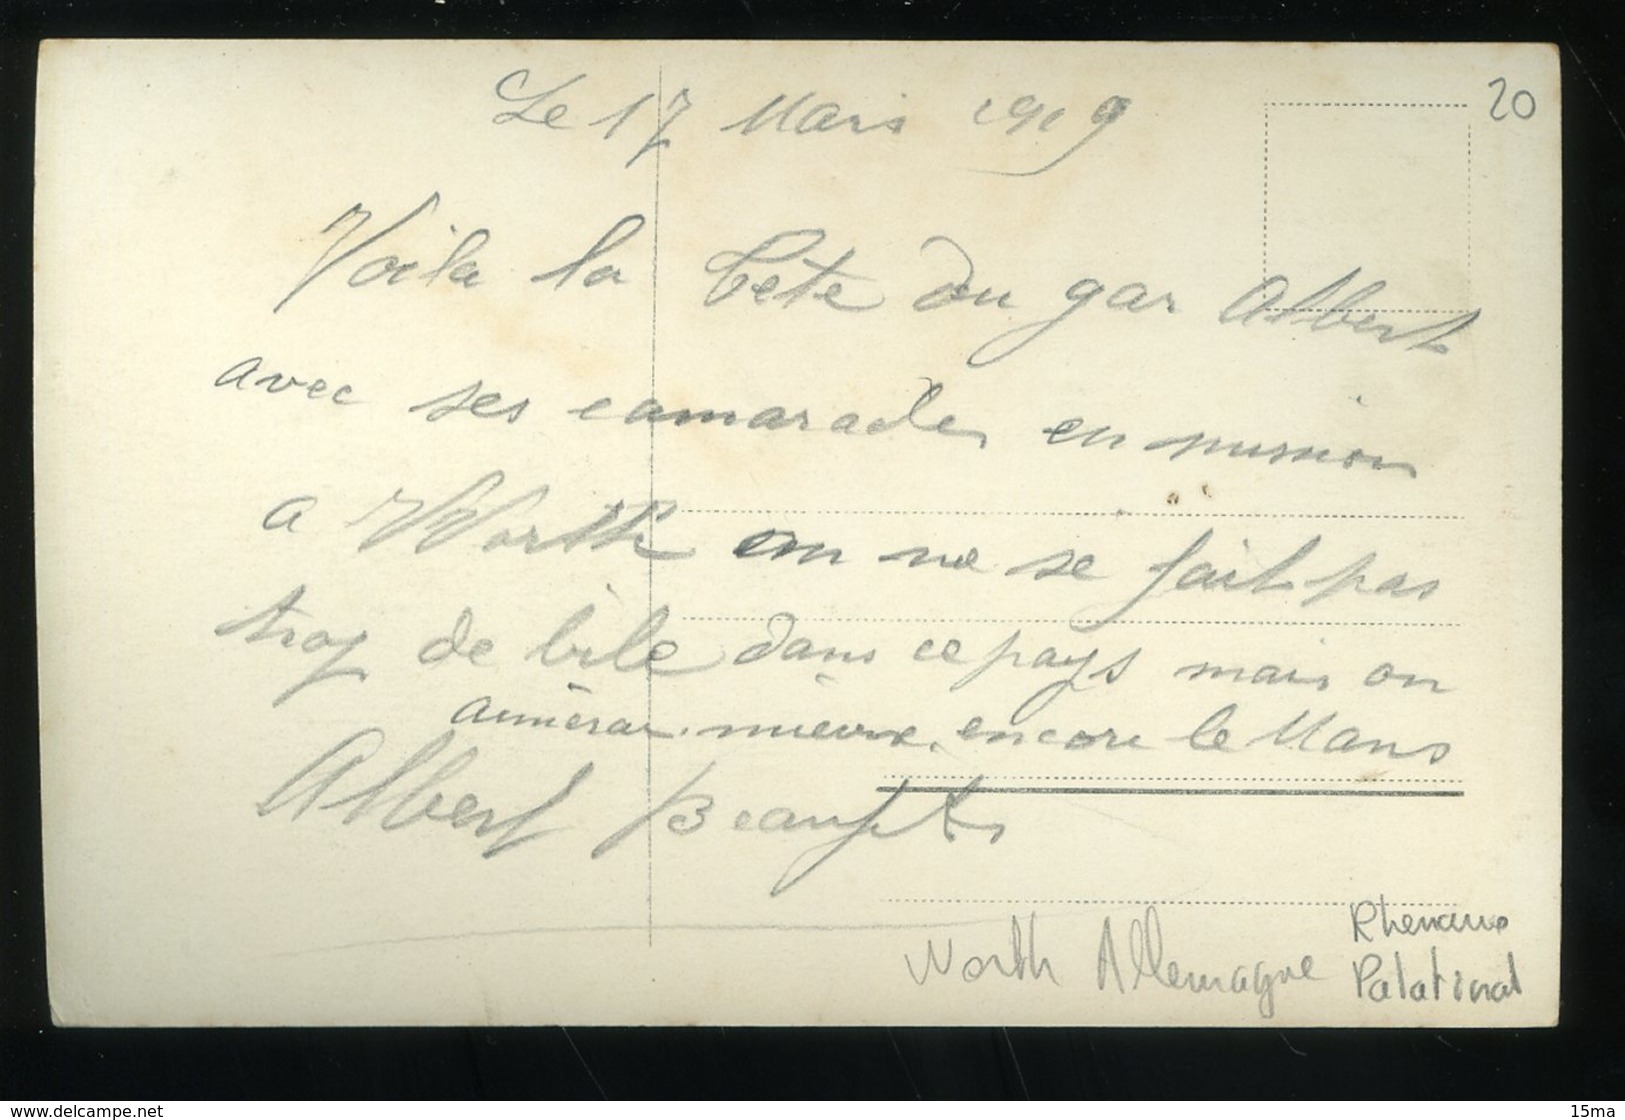 Le 17 Mars 1919
20
Voila la tête du gar Albert
avec ses camarades en mission
a Worth on ne se fait pas
trop de bile dans ce pays mais on
aimerai mieux encore le Mans
Albert
Worth Allemagne
Rhenanie
Palatinat
www.delcampe.net
15ma